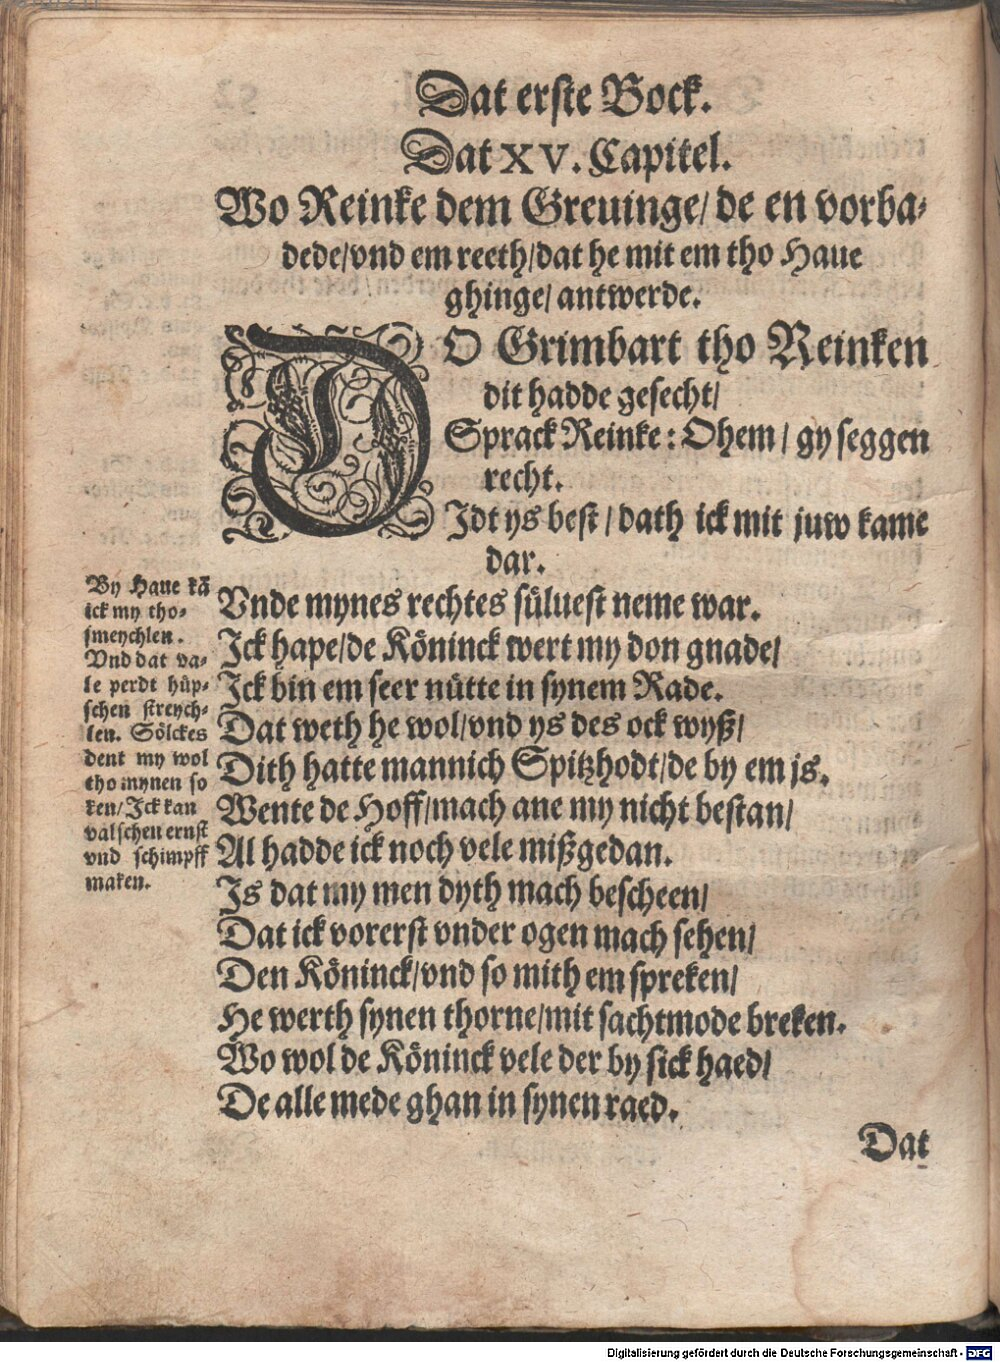 Dat erste Bock.
Dat XV. Capitel.
Wo Reinke dem Greuinge/ de en vorba-
dede/vnd em reeth/dat he mit em tho Haue
ghinge/ antwerde.
DO Grimbart tho Reinken
dit hadde gesecht/
Sprack Reinke: Ohem/ gy seggen
recht.
Idt ys best/ dath ick mit juw kame
dar.
Vnde mynes rechtes süluest neme war.
Ick hape/de Köninck wert my don gnade/
Ick bin em seer nütte in synem Rade.
Dat weth he wol/vnd ys des ock wyß/
Dith hatte mannich Spitzhodt/de by em is.
Wente de Hoff/mach ane my nicht bestan/
Al hadde ick noch vele mißgedan.
Is dat my men dyth mach bescheen/
Dat ick vorerst vnder ogen mach sehen/
Den Köninck/vnd so mith em spreken/
He werth synen thorne/mit sachtmode breken.
Wo wol de Köninck vele der by sick haed/
De alle mede ghan in synen raed.
Dat
By Haue kā
ick my tho-
smeychlen.
Vnd dat va-
le perdt hüp-
schen streych-
len. Sölckes
dent my wol
tho mynen so
ken/Ick kan
valschen ernst
vnd schimpff
maken.
Digitalisierung gefördert durch die Deutsche Forschungsgemeinschaft - DFG